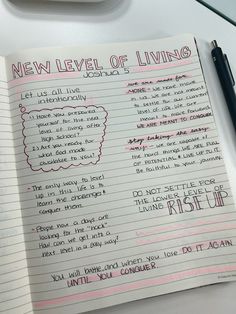 NEW LEVEL OF LIVING
Joshua 5
Let us all live
intentionally
1) Have you prepared
yourself for the next
level of living after
high school?
2) Are you ready for
what God made
available to you?
• The only way to level
up in this life is to
learn the challenges &
conquer them.
• People now a days are
looking for the "hack"
How can we get into a
next level in a easy way?
we are made for
MORE - we have more
in us, we are not meant
to settle for our current
level of living. We are
meant to conquer
WE ARE MEANT TO CONQUER
Stop taking the easy
way - we are capable of
the hard things. WE ARE FULL
OF POTENTIAL & LIVE UP TO IT.
Be faithful to your journey.
DO NOT SETTLE FOR
THE LOWER LEVEL OF
LIVING RISE UP
You will battle and when you lose DO IT AGAIN
UNTIL YOU CONQUER.